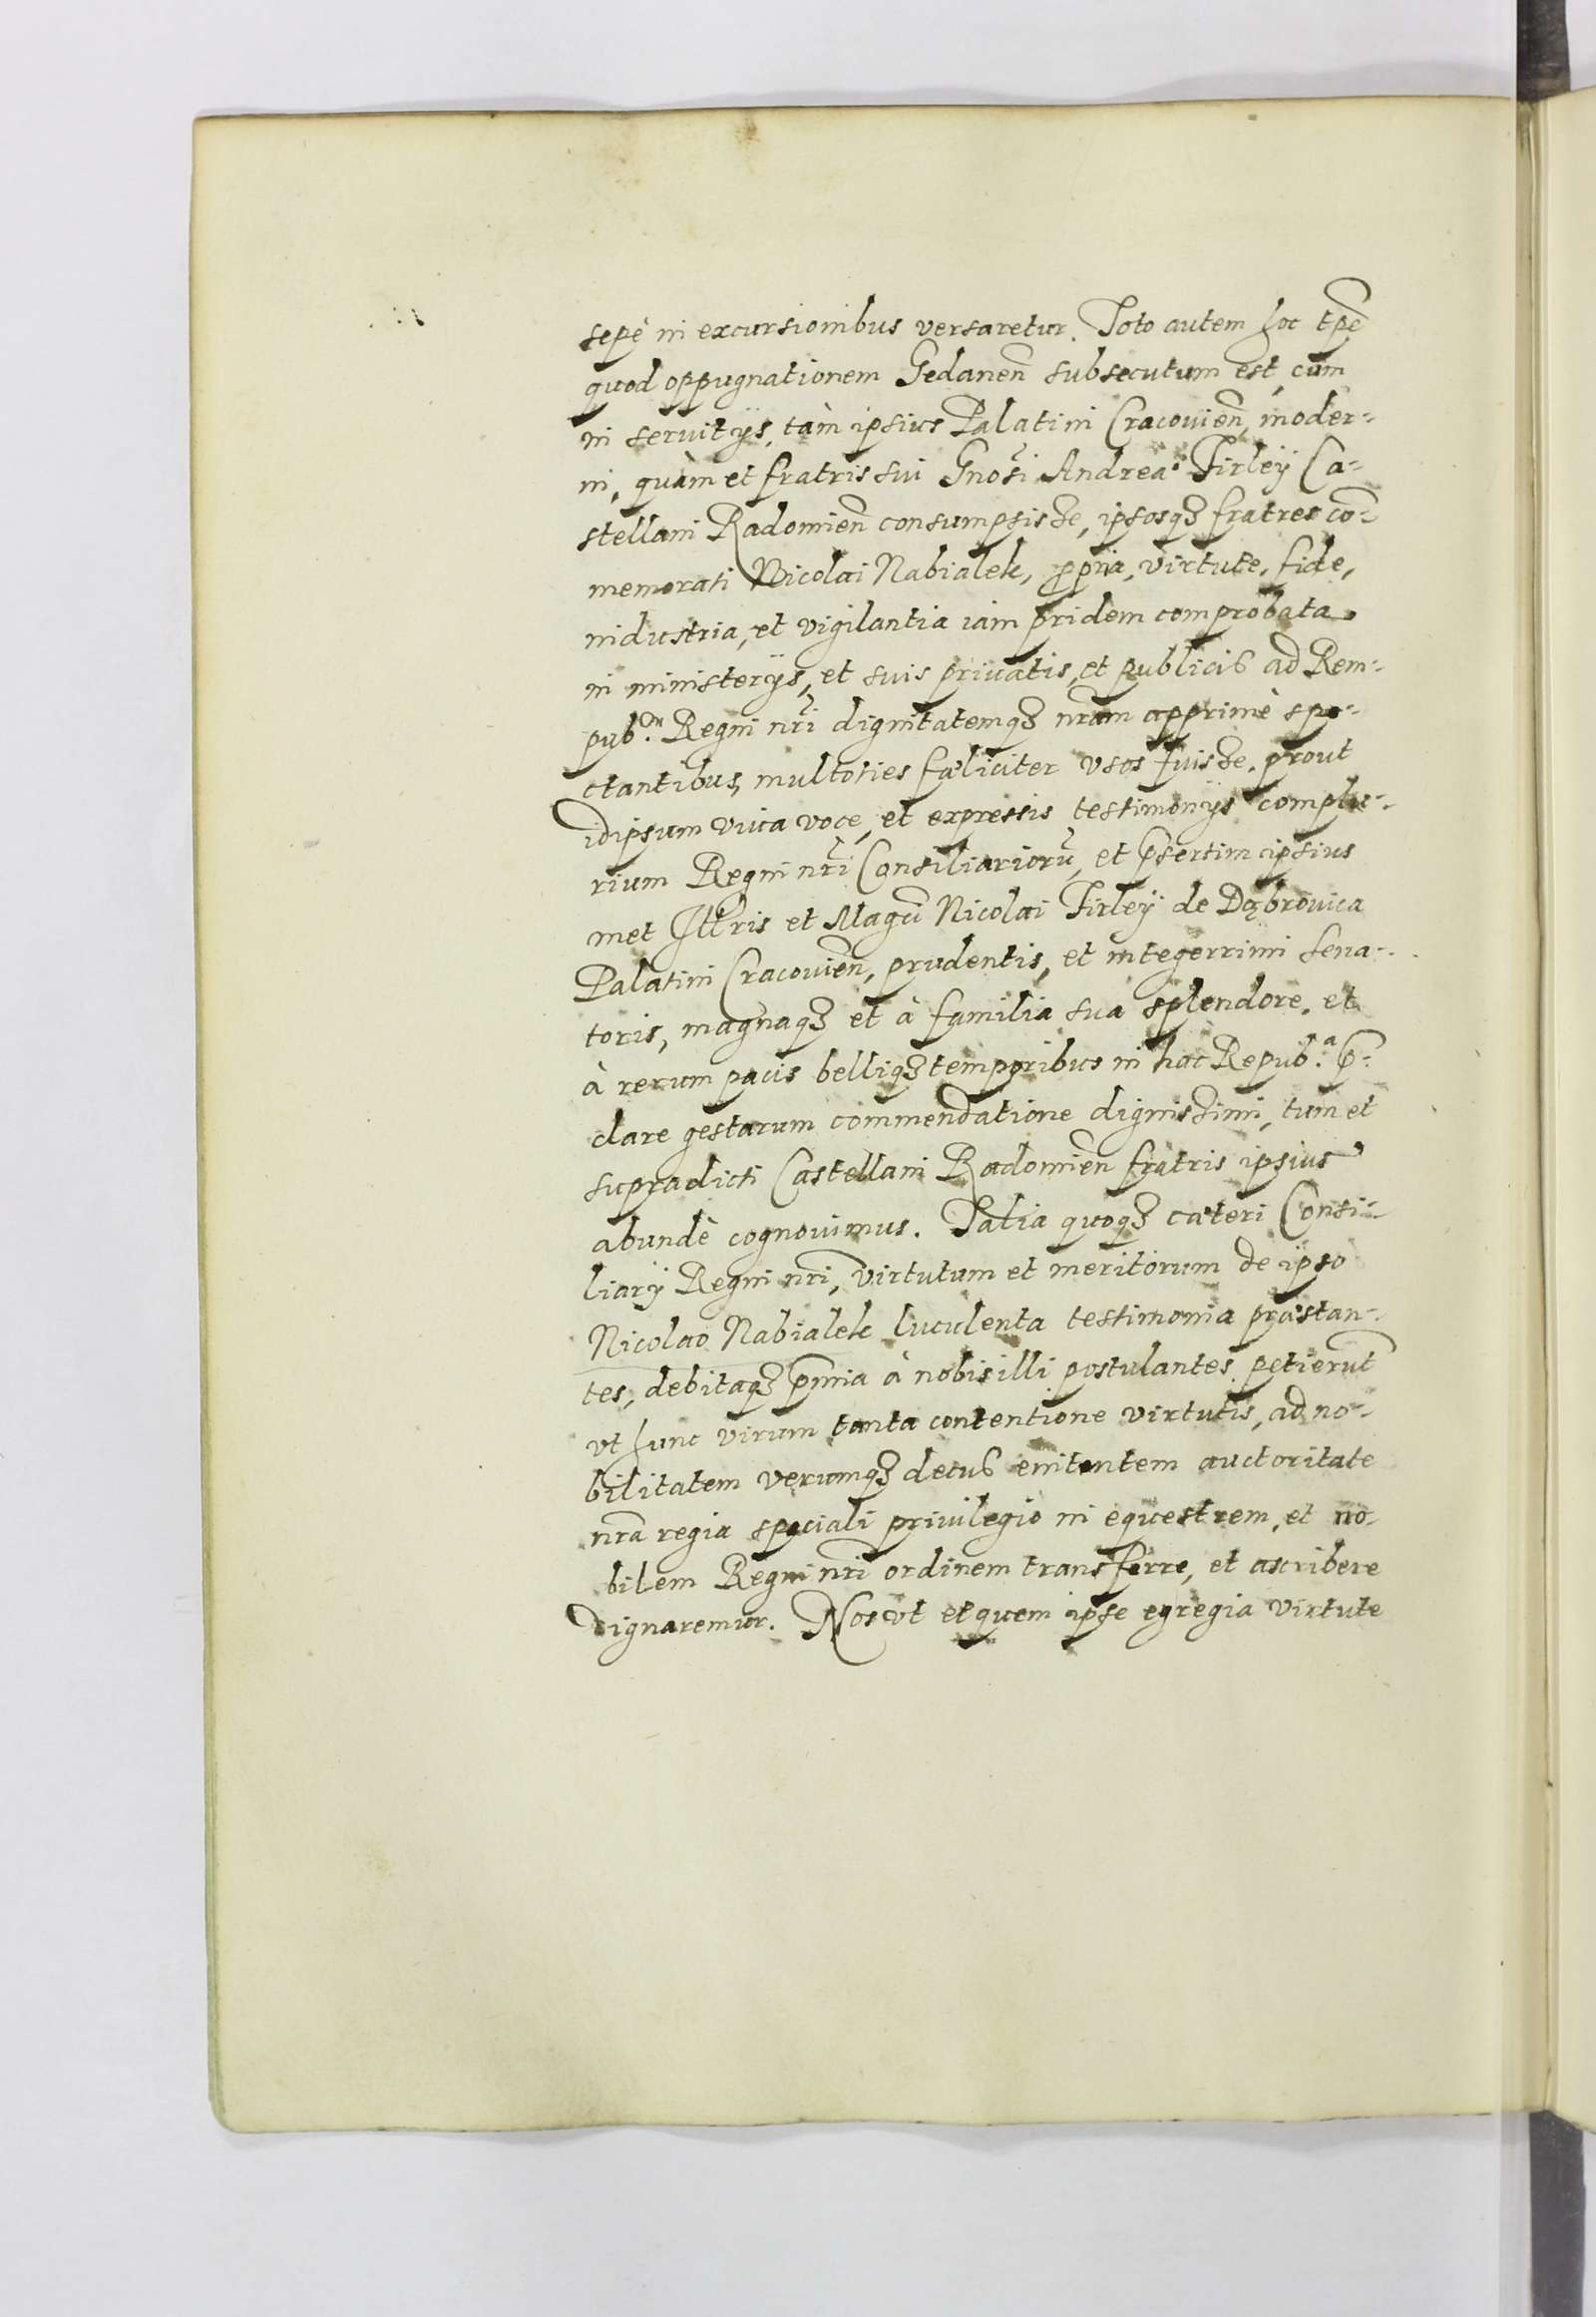 sepè in excursionibus versaretur. Toto autem hoc tp̃e
quod oppugnationem Gedaneñ subsecutum est, cum
in servitijs, tàm ipsius Palatini Cracovieñ, moder-
ni, quàm et fratris sui Gnosi Andreæ Firleÿ Ca-
stellani Radomieñ consumpsisse, ipsosq3 fratres cõ-
memorati Nicolai Nabialek, ꝓpria, virtute, fide,
industria, et vigilantia iam pridem comprobata
in ministerijs, et suis privatis, et publicis ad Rem-
pub.m Regni nr̃i dignitatemq3 nr̃am apprimè spe-
ctantibus, multoties fæliciter vsos fuisse, prout
idipsum viva voce, et expressis testimonijs complu-
rium Regni nr̃i Consiliariorũ, et p̃sertim ipsius
met Ill̃ris et Magci Nicolai Firleÿ de Dąbrovica
Palatini Cracovieñ, prudentis, et integerrimi sena-
toris, magnaq3 et à familia sua splendore, et
à rerum pacis belliq3 temporibus in hac Repub.a p̃-
clare gestarum commendatione dignissimi, tum et
supradicti Castellani Radomieñ fratris ipsius
abundè cognovimus. Talia quoq3 cæteri Consi-
liarÿ Regni nr̃i, virtutum et meritorum de ipso
Nicolao Nabialek luculenta testimonia præstan-
tes, debitaq3 p̃mia à nobis illi postulantes, petierũt
vt hunc virum tanta contentione virtutis, ad no-
bilitatem verumq3 decus enitentem auctoritate
nr̃a regia speciali privilegio in equestrem, et no-
bilem Regni nr̃i ordinem transferre, et ascribere
dignaremur. Nos vt et quem ipse egregia virtute